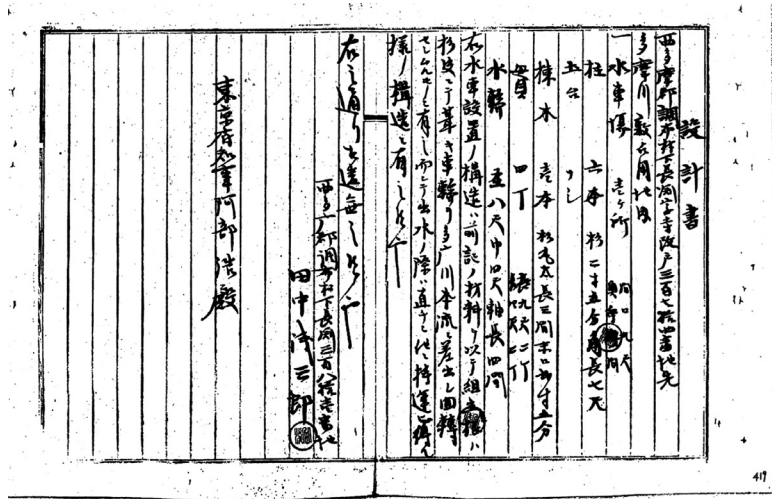 設計書
西多摩郡調布村下長淵字寺改戸三百七拾四番地先
多摩川敷官有地内
一水車場 壱ヶ所 間口九尺 奥行 間
柱 六本 杉二寸五分角長七尺
土台
棟木 壱本 杉丸太長三間末口弐寸五分
貫 四丁 長九尺二丁
水輪 差八尺巾四尺軸長四間
右水車設置ノ構造ハ前記ノ材料ヲ以テ組立屋根ハ
杉皮ニテ葺キ車輪ヲ多广川本流ニ差出シ回転
セシムルモノニ有之而シテ出水ノ際ハ直チニ他ニ持運ヒ得ル
様ノ構造ニ有之候也
右之通リ相違無之候也
西多广郡調布村下長淵三百八拾壱番地
田中 三郎
東京府知事阿部浩殿
419